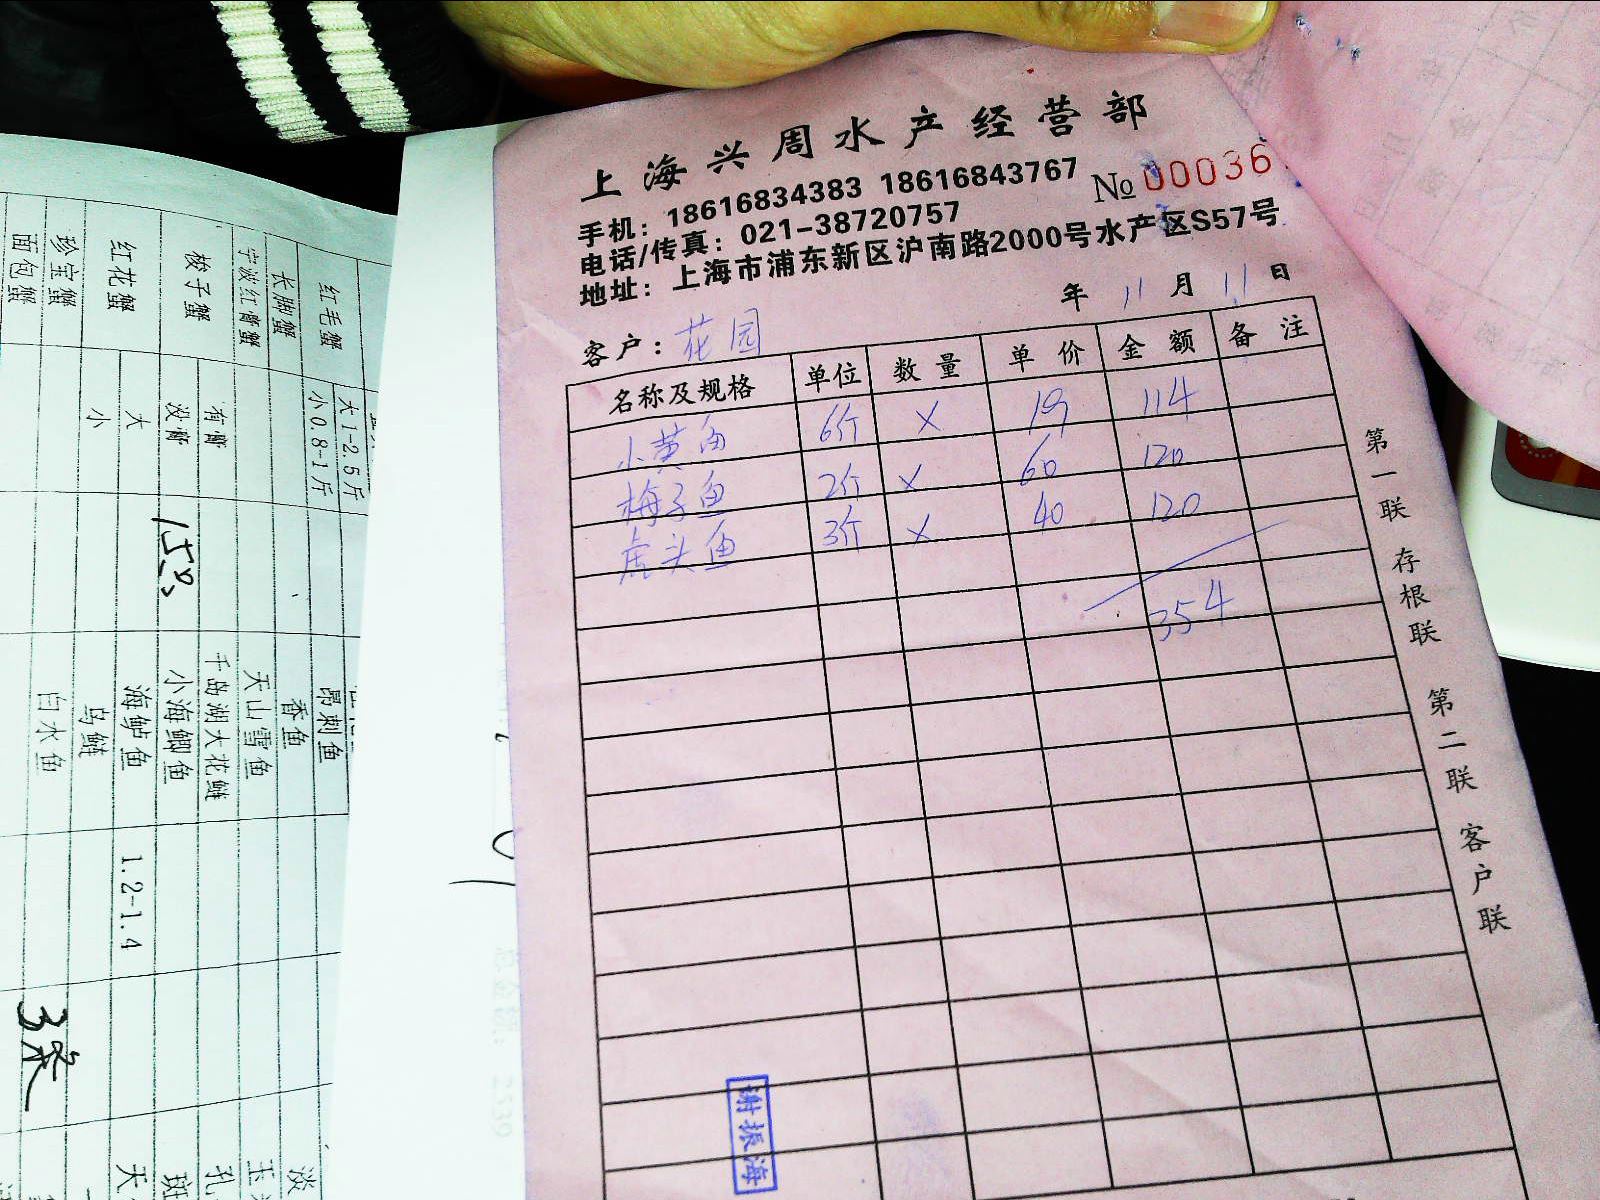 上海兴周水产经营部
手机：18616834383 18616843767
№ 00036
电话/传真：021-38720757
地址：上海市浦东新区沪南路2000号水产区S57号
年 11 月 11 日
客户：花园
名称及规格 单位 数量 单价 金额 备注
小黄鱼 6斤 × 19 114
梅子鱼 2斤 × 60 120
虎头鱼 3斤 × 40 120
354
第一联 存根联 第二联 客户联
谢振海
红毛蟹 大1-2.5斤 昂刺鱼
小0.8-1斤 香鱼
长脚蟹 天山雪鱼
宁波红膏蟹 千岛湖大花鲢
梭子蟹 有膏 小海鲫鱼
没膏 15只
红花蟹 大 海鲈鱼 1.2-1.4
小 乌鲢
珍宝蟹 白水鱼 3条
面包蟹